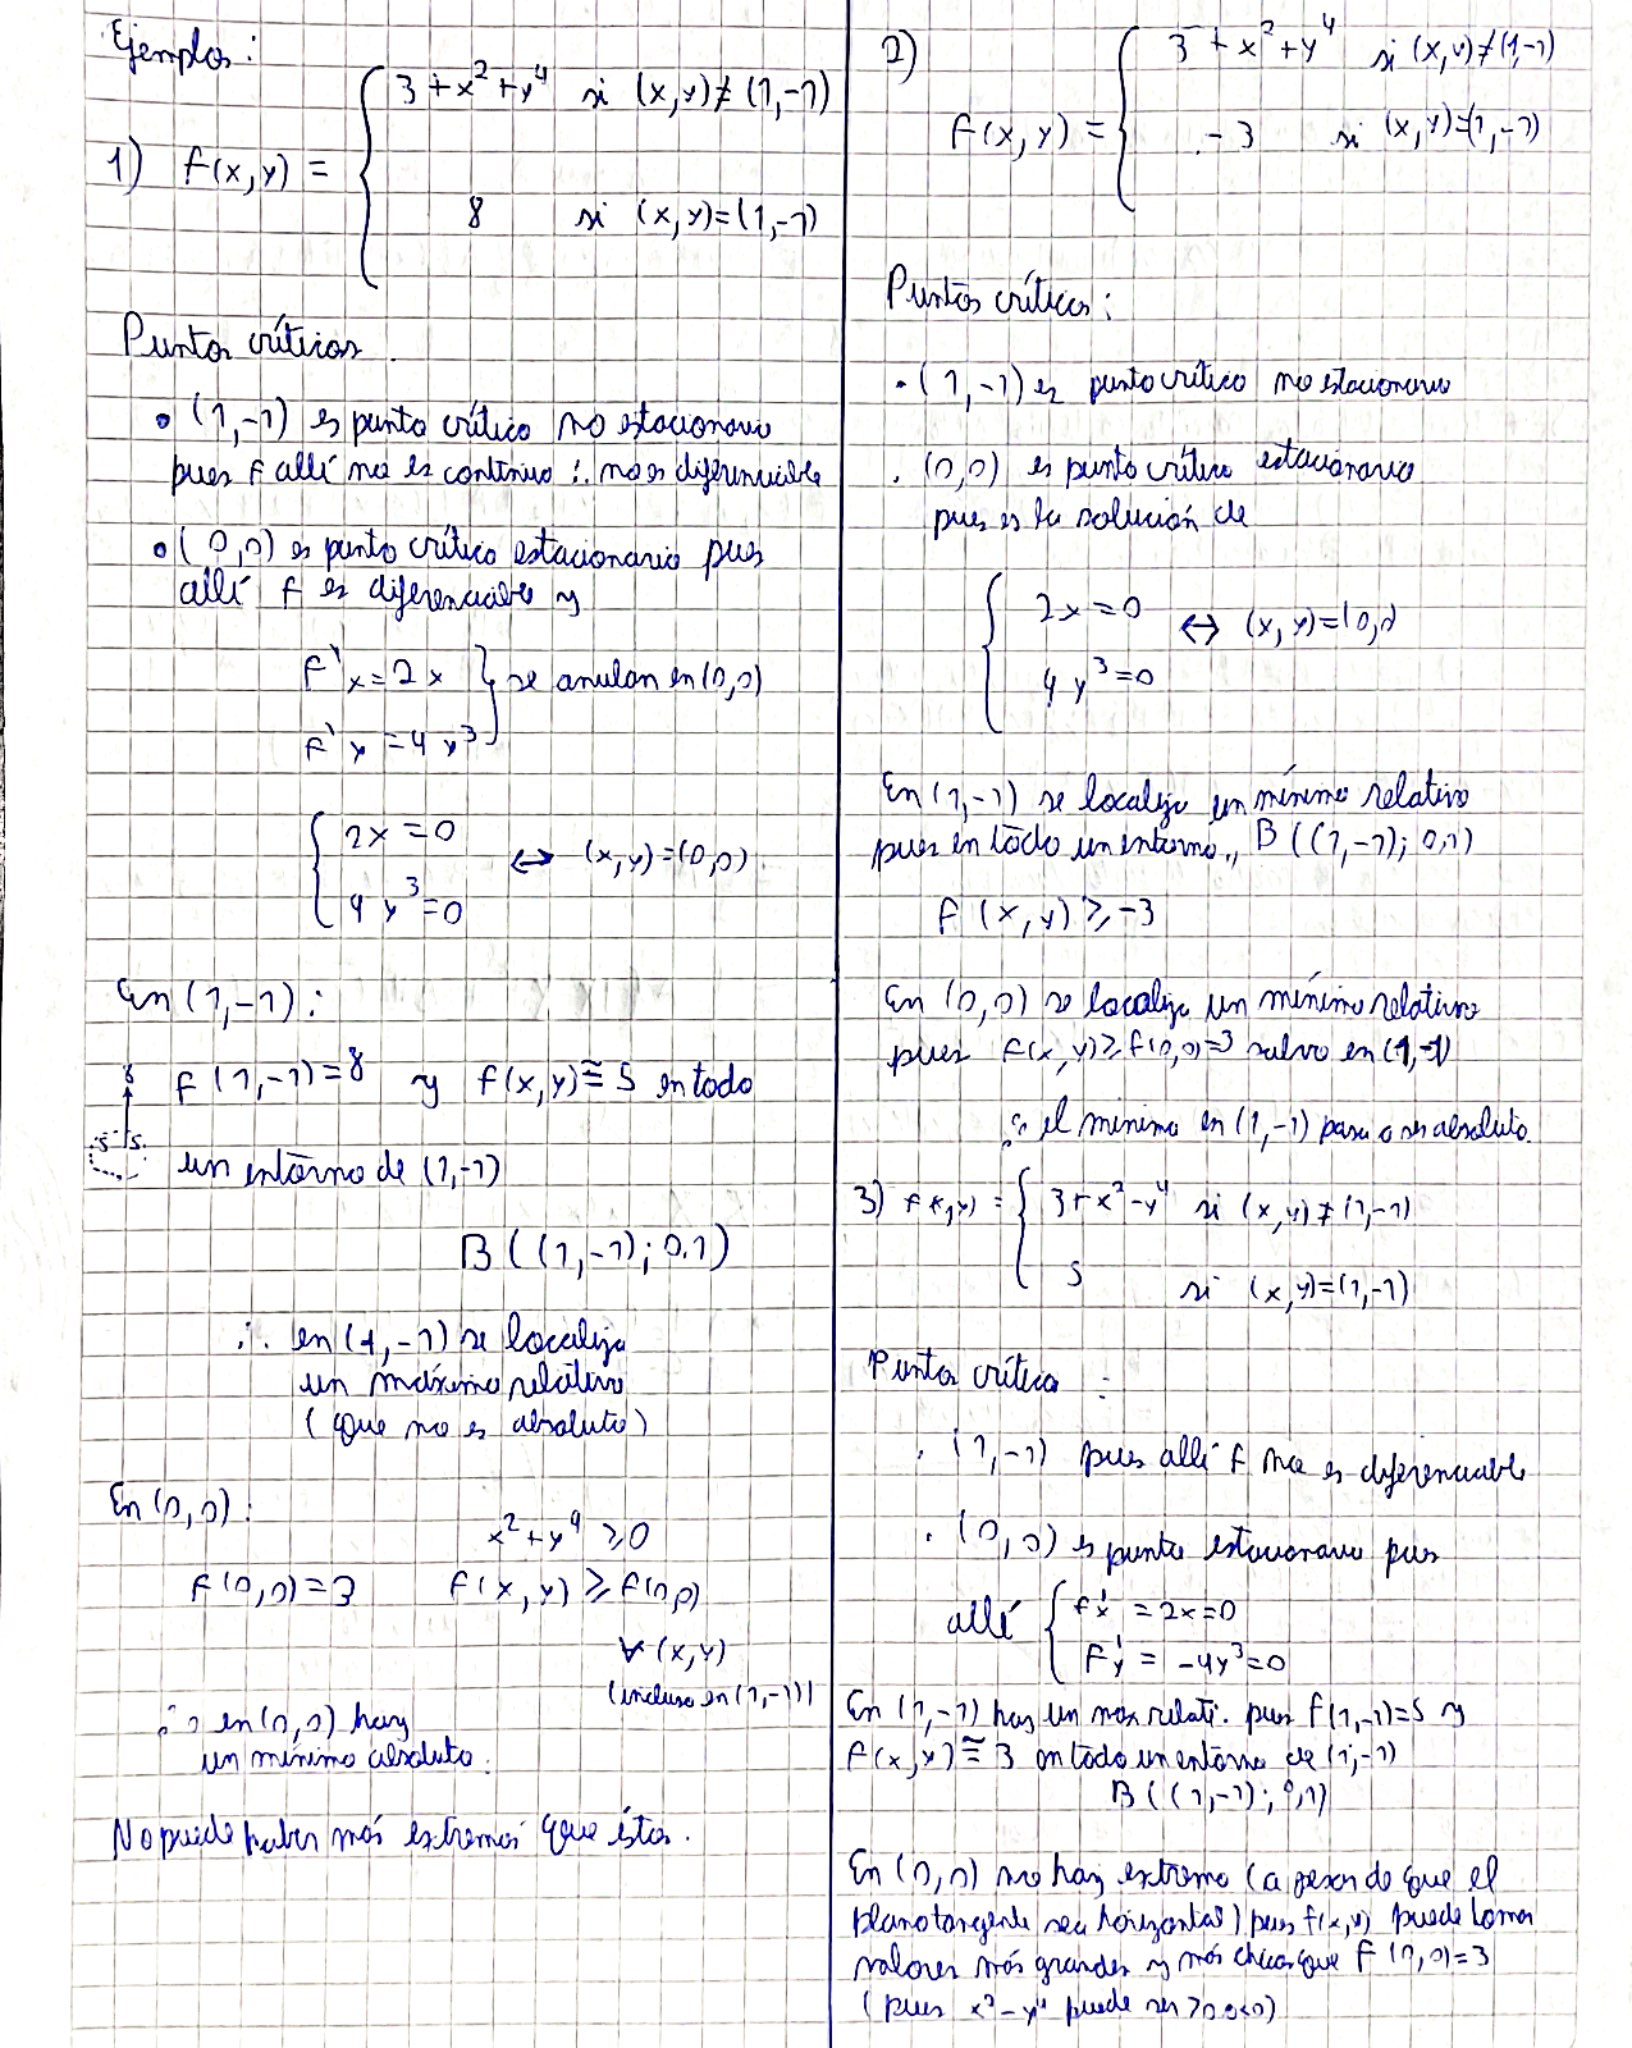 Ejemplos:
1) f(x,y) = { 3+x²+y⁴ si (x,y)≠(1,-1)
8 si (x,y)=(1,-1)
Puntos críticos.
• (1,-1) es punto crítico no estacionario
pues f allí no es continua ∴ no es diferenciable
• (0,0) es punto crítico estacionario pues
allí f es diferenciable y
f'x=2x } se anulan en (0,0)
f'y=4y³
{ 2x=0
4y³=0 ↔ (x,y)=(0,0).
En (1,-1):
8
f(1,-1)=8 y f(x,y)≅5 en todo
5 5
un entorno de (1,-1)
B((1,-1);0.1)
∴ en (1,-1) se localiza
un máximo relativo
(que no es absoluto)
En (0,0):
x²+y⁴ ≥0
f(0,0)=3 f(x,y) ≥ f(0,0)
∀(x,y)
(incluso en (1,-1))
∴ en (0,0) hay
un mínimo absoluto.
No puede haber más extremos que éstos.
2)
f(x,y) = { 3+x²+y⁴ si (x,y)≠(1,-1)
-3 si (x,y)=(1,-1)
Puntos críticos:
• (1,-1) es punto crítico no estacionario
• (0,0) es punto crítico estacionario
pues es la solución de
{ 2x=0
4y³=0 ↔ (x,y)=(0,0)
En (1,-1) se localiza un mínimo relativo
pues en todo un entorno, B((1,-1);0,1)
f(x,y) ≥ -3
En (0,0) se localiza un mínimo relativo
pues f(x,y)≥f(0,0)=3 salvo en (1,-1)
∴ el mínimo en (1,-1) pasa a ser absoluto.
3) f(x,y) = { 3+x²-y⁴ si (x,y)≠(1,-1)
5 si (x,y)=(1,-1)
Puntos críticos:
• (1,-1) pues allí f no es diferenciable
• (0,0) es punto estacionario pues
allí { f'x = 2x=0
f'y = -4y³=0
En (1,-1) hay un max relati. pues f(1,-1)=5 y
f(x,y)≅3 en todo un entorno de (1,-1)
B((1,-1);0,1)
En (0,0) no hay extremo (a pesar de que el
plano tangente sea horizontal) pues f(x,y) puede tomar
valores más grandes y más chicos que f(0,0)=3
(pues x²-y⁴ puede ser >0 o <0)